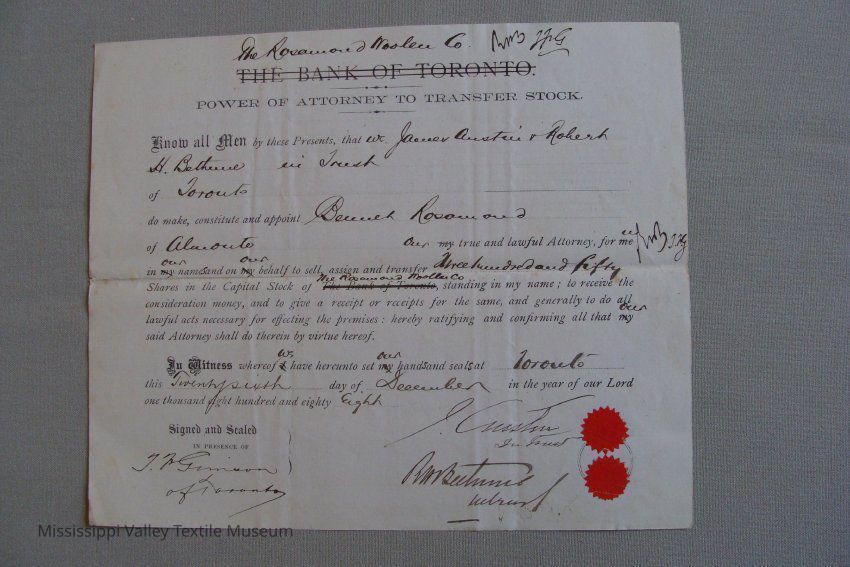 The Rosamond Woolen Co.
THE BANK OF TORONTO.
POWER OF ATTORNEY TO TRANSFER STOCK.
Know all Men by these Presents, that we James Austin & Robert
H. Bethune in Trust
of Toronto
do make, constitute and appoint Bennet Rosamond
of Almonte our my true and lawful Attorney, for me us
our our
in my names and on my behalf to sell, assign and transfer Three hundred and fifty
The Rosamond Woolen Co.
Shares in the Capital Stock of The Bank of Toronto, standing in my name; to receive the
consideration money, and to give a receipt or receipts for the same, and generally to do all
our
lawful acts necessary for effecting the premises: hereby ratifying and confirming all that my
said Attorney shall do therein by virtue hereof.
we our
In Witness whereof I have hereunto set my hands and seals at Toronto
this Twenty sixth day of December in the year of our Lord
one thousand eight hundred and eighty Eight
Signed and Sealed
IN PRESENCE OF
J. Austin
In Trust
of Toronto
Mississippi Valley Textile Museum